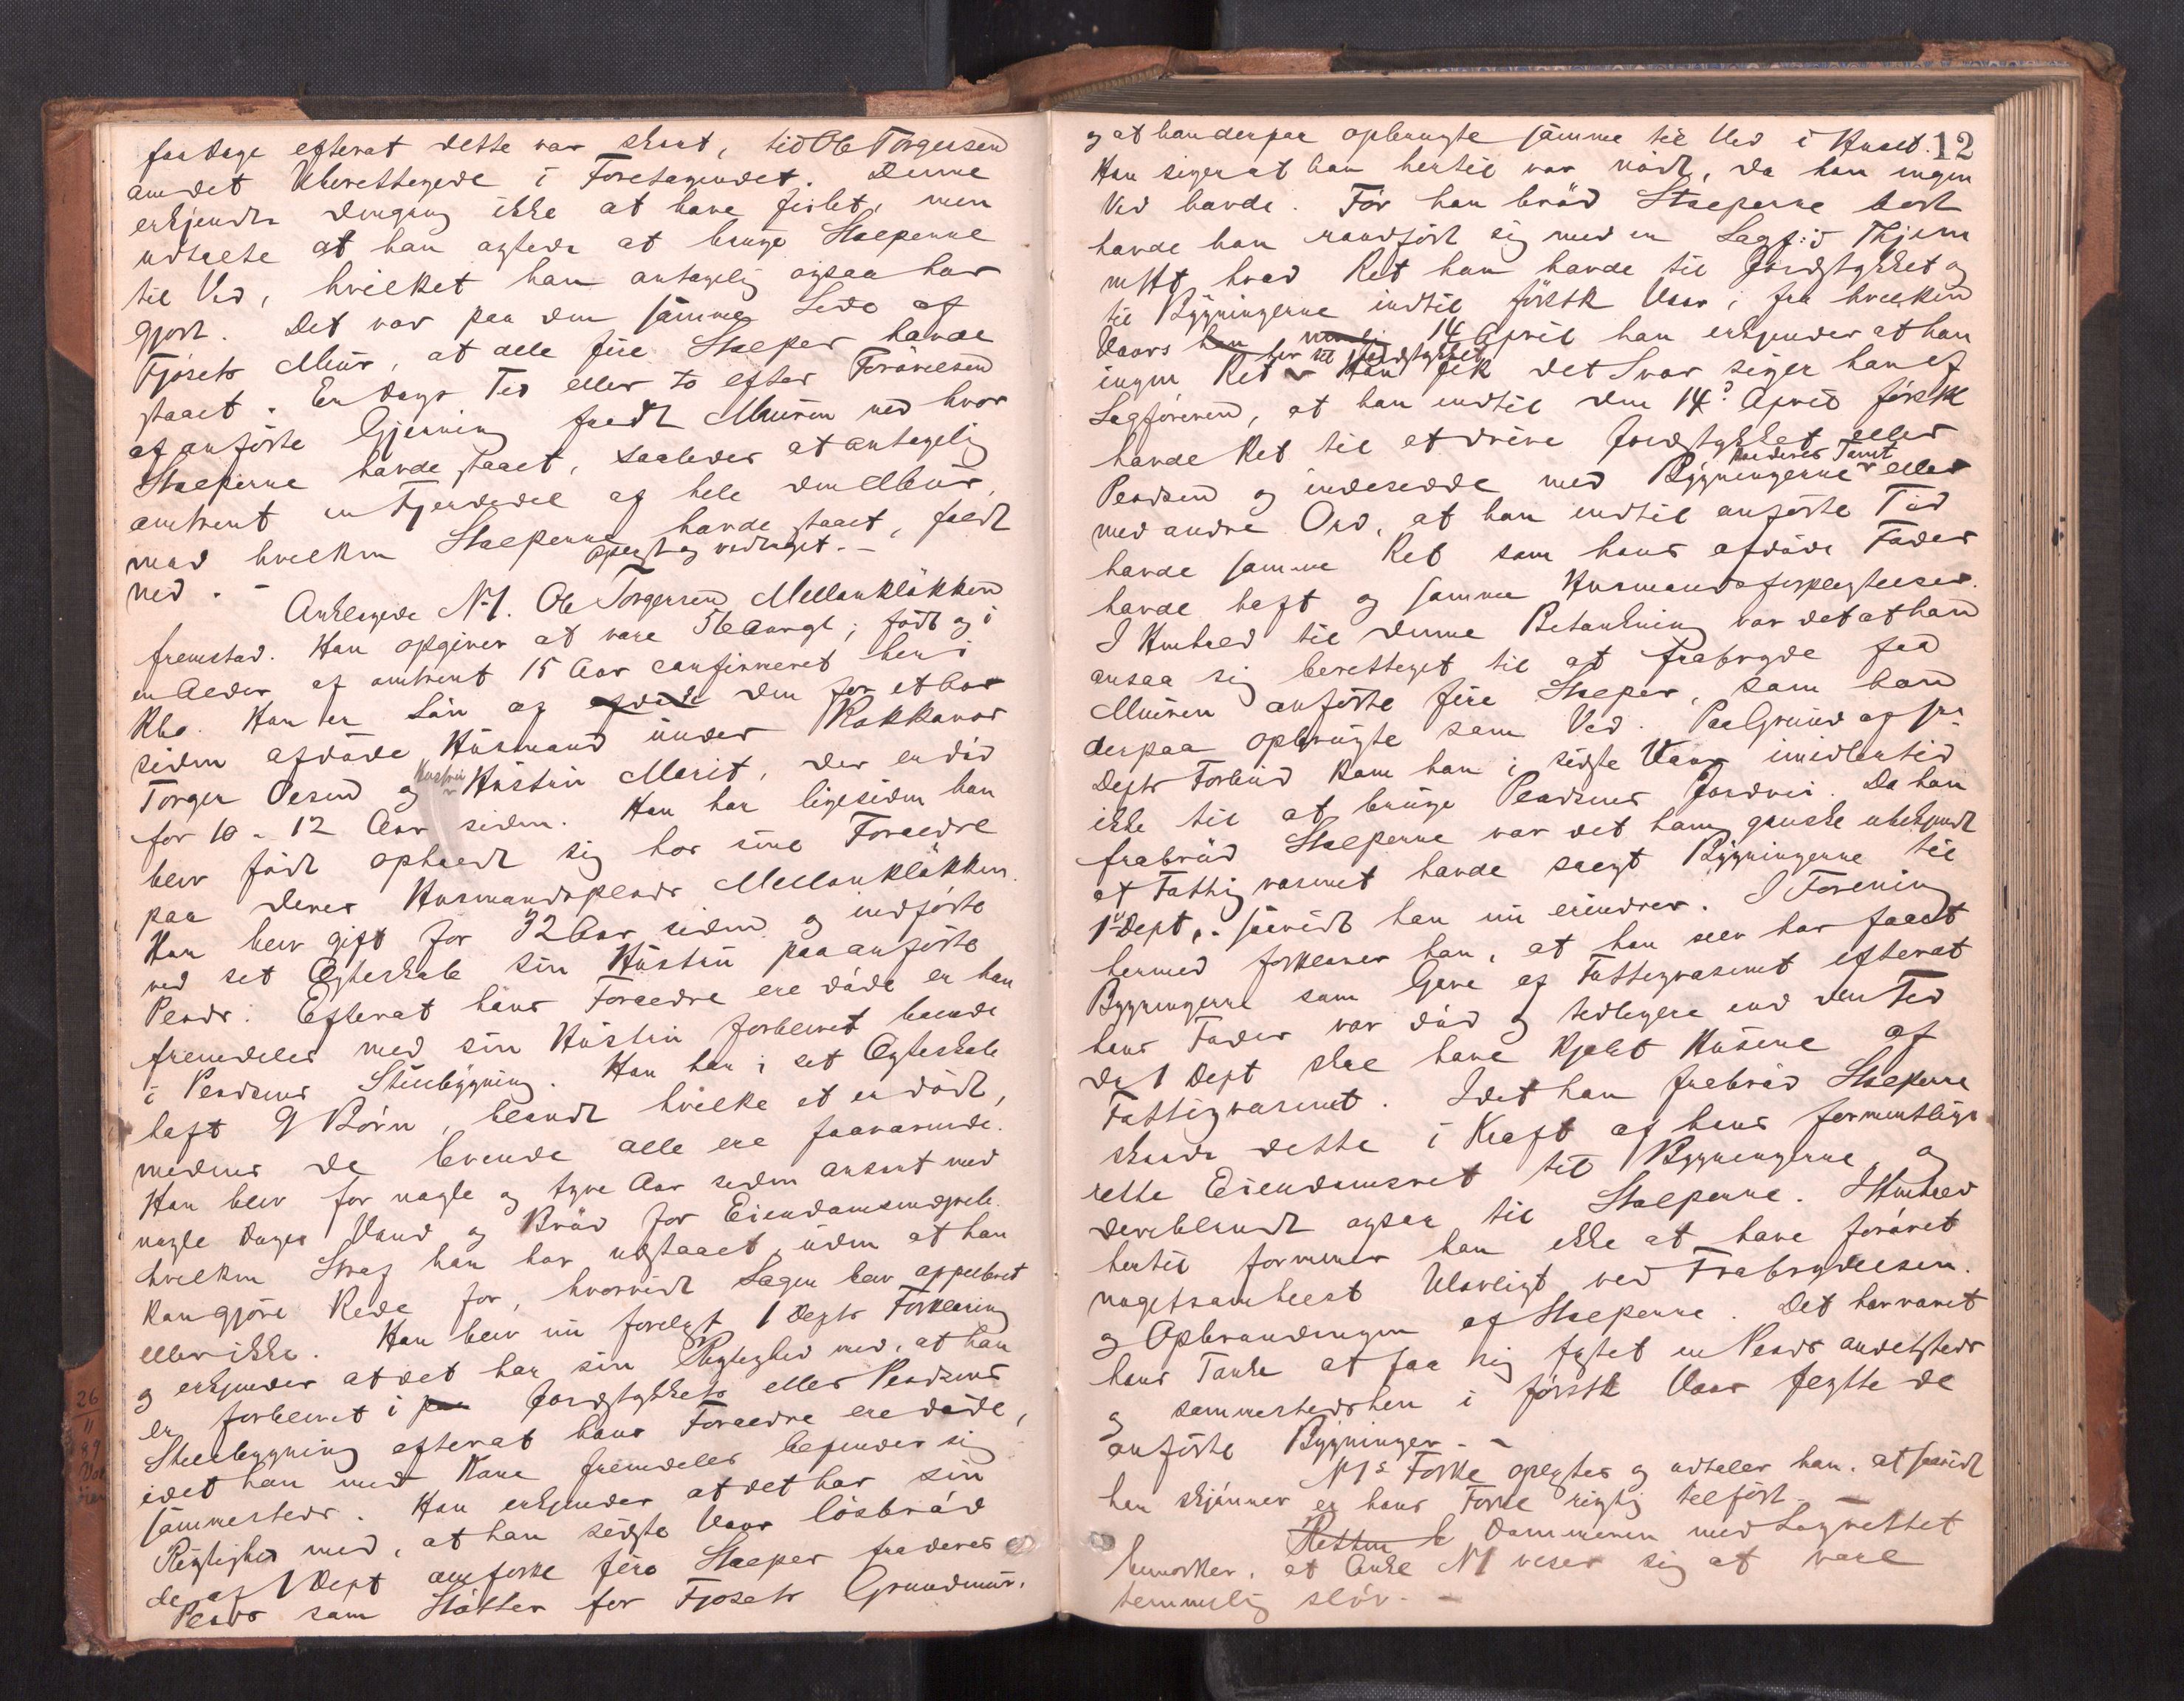 faa Dage efterat dette var skeet, tid Ole Torgersen
om det Uberettigede i Foretagendet. Denne
erkjendte dengang ikke at have feilet, men
udtalte at han agtede at bruge Stolperne
til Ved, hvilket han antagelig ogsaa har
gjort. Det var paa den samme Side af
Fjøsets Muur, at alle fire Stolper havde
staaet. En Dags Tid eller to efter Forøvelsen
af anførte Gjerning faldt Muren ned hvor
Stolperne havde staaet, saaledes at antagelig
omtrent en Fjerdedel af hele den Muur,
mod hvilken Stolperne havde staaet, faldt
ned. - Oplæst og vedtaget. -
Anklagede N. 1. Ole Torgersen Mellomkløkken
fremstod. Han opgiver at være 56 Aar gl; født og i
en Alder af omtrent 15 Aar confirmeret her i
Han er Søn af den for et Aar
siden afdøde Husmand under Kokkonor
Torger Olsen og Hustru Hustru Marit, der er død
for 10 a 12 Aar siden. Han har ligesiden han
blev født opholdt sig hos sine Forældre
paa deres Husmandsplads Mellomkløkken.
Han blev gift for 32 Aar siden og indførte
ved sit Ægteskab sin Hustru paa anførte
Plads. Efterat hans Forældre ere døde er han
fremdeles med sin Hustru forblevet boende
i Pladsens Stuebygning. Han har i sit Ægteskab
haft 9 Børn, blandt hvilke et er dødt,
medens de levende alle ere fraværende.
Han blev for nogle og tyve Aar siden anseet med
nogle Dages Vand og Brød for Eiendomsindgreb.
hvilken Straf han har udstaaet, uden at han
kan gjøre Rede for, hvorvidt Sagen blev appelleret
eller ikke. Han blev nu forelagt 1 Depts Forklaring
og erkjender at det har sin Rigtighed med, at han
er forblevet i paa Jordstykkets eller Pladsens
Stuebygning efterat hans Forældre ere døde,
idet han med Kone fremdeles befinder sig
sammesteds. Han erkjender at det har sin
Rigtighed med, at han sidste Vaar løsbrød
de af 1 Dept omforkl fire Stolper fra deres
Plads som Støtter for Fjøsets Grundmur.
12
og at han derpaa opbrugte samme til Ved i Huset.
Han siger at han hertil var nødt, da han ingen
Ved havde. Før han brød Stolperne bort
havde han raadført sig med en Sagf:d Thjem
mht, hvad Ret han havde til Jordstykket og
til Bygningerne indtil førstk Vaar, fra hvilken
Vaars han nemlig 14 April han erkjender at han
ingen Ret har til Jordstykket Han fik det Svar siger han af
Sagføreren, at han indtil den 14d April førstk
havde Ret til at drive Jordstykket eller
Pladsen og indesidde med Bygningerne Tomt eller
med andre Ord, at han indtil anførte Tid
havde samme Ret som hans afdøde Fader
havde haft og samme Husmandsforpligtelser.
I Henhold til denne Betænkning var det at han
ansaa sig berettiget til at frabryde fra
Muren anførte fire Stolper, som han
derpaa opbrugte som Ved. Paa Grund af
Depts Forbud kom han i sidste Vaar imidlertid
ikke til at bruge Pladsens Jordvei. Da han
frabrød Stolperne var det ham ganske ubekjendt
at Fattigvæsenet havde solgt Bygningerne til
1ste Dept, - saavidt han nu erindrer. I Forening
hermed forklarer han, at han selv har faaet
Bygningerne som Gave af Fattigvæsenet efterat
hans Fader var død og tidligere end den Tid
da 1 Dept skal have kjøbt Husene af
Fattigvæsenet. Idet han frabrød Stolperne
skede dette i Kraft af hans formentlige
rette Eiendomsret til Bygningerne og
deriblandt ogsaa til Stolperne. I Henhold
hertil formener han ikke at have forøvet
nogetsomhelst Ulovligt ved Frabrydelsen
og Opbrændingen af Stolperne. Det har været
hans Tanke at faa sig fæstet en Plads andetsteds
og sammesteds hen i førstk Vaar flytte de
anførte Bygninger. -
N1s Forkl oplæstes og udtaler han, at saavidt
han skjønner er hans Forkl rigtig tilført. -
Retten b Dommeren med Lagrettet
bemærker, at Ankl N1 viser sig at være
temmelig sløv. -
26
11
89